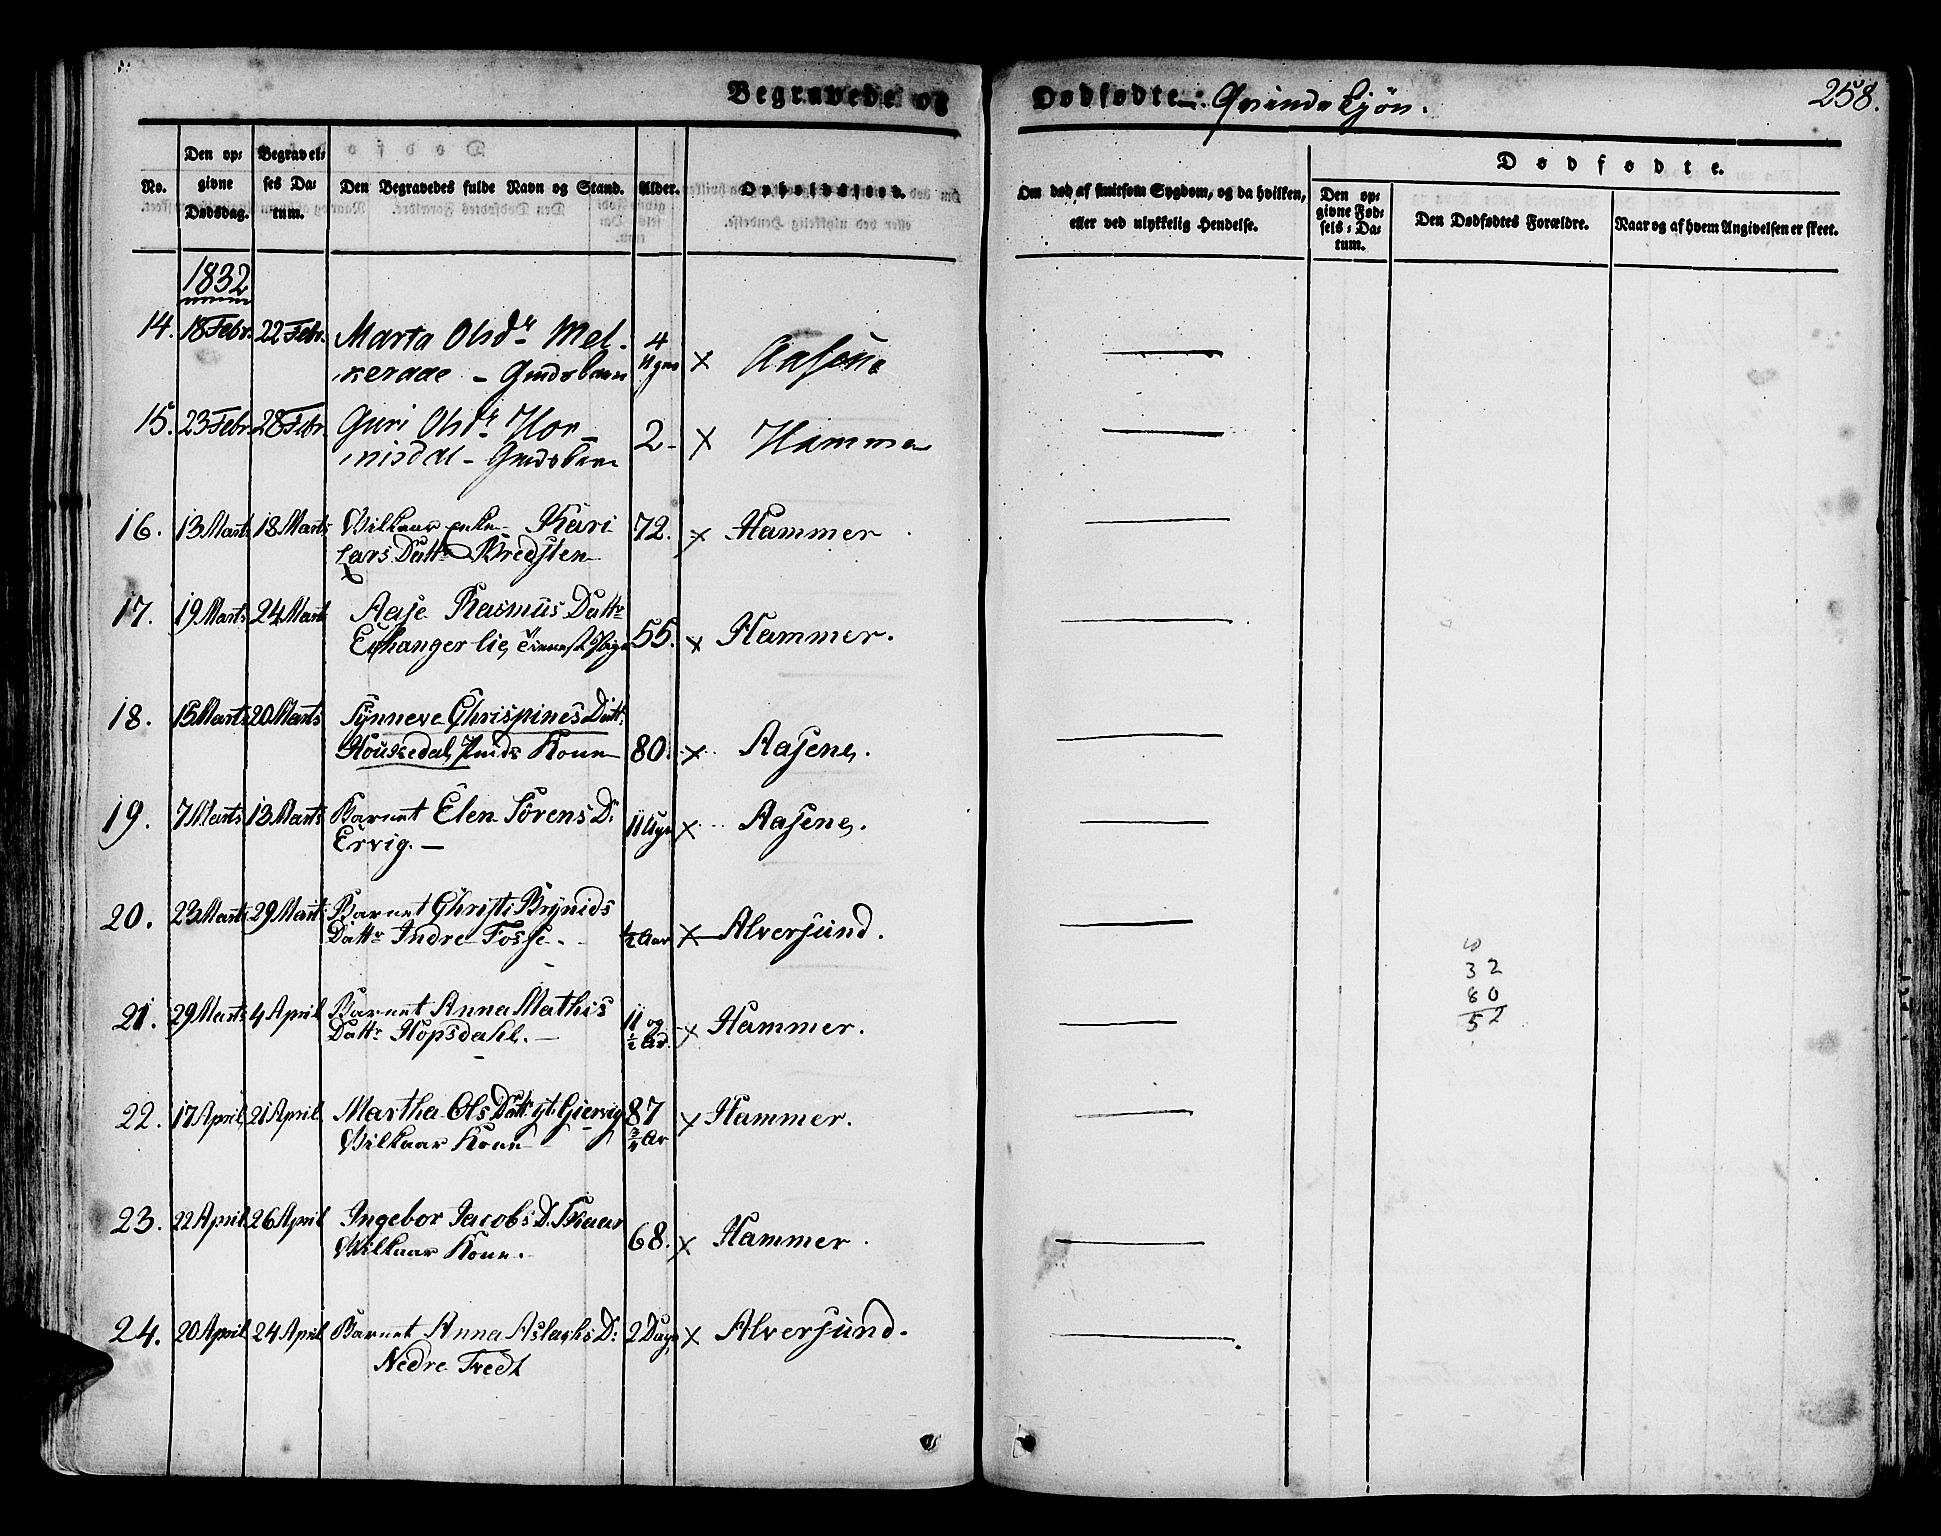 Begravede og Dødfødte. Qvinde Kjøn. 258.
No.
Den op-
givne
Dødsdag.
Begravel-
ses Da-
tum.
Den Begravedes fulde Navn og Stand.
Alder.
Opholdssted.
Om død af smitsom Sygdom, og da hvilken,
eller ved ulykkelig Hendelse.
Dødfødte.
Den op-
givne Fød-
sels-Da-
tum.
Den Dødfødtes Forældre.
Naar og af hvem Angivelsen er skeet.
1832
14. 18 Febr. 22 Febr. Marta Olsdr Mel-
keraae - Gmdsbarn 4 Uger x Aasene
15. 23 Febr. 28 Febr. Guri Olsdr Hor-
nisdal - Gmdsbarn 2 - x Hammer
16. 13 Marts 18 Marts Vilkaar enke Kari
Lars Dattr Bredsten 72. x Hammer
17. 19 Marts 24 Marts Aase Rasmus Dattr
Eikanger lie, 55. x Hammer.
18. 15 Marts 20 Marts Synneve Chrispines Datt:
Houssedal, Huids Kone 80. x Aasene.
19. 7 Marts 13 Marts Barnet Elen Sörens D:
Ervig. — 11 Uger x Aasene.
20. 23 Marts 29 Marts Barnet Christi Brynids
Dattr Indre Fosse. - 1/2 Aar x Alversund.
21. 29 Marts 4 April Barnet Anna Mathis
Dattr Hopsdahl. — 11 og
1/2 Ar. x Hammer.
22. 17 April 21 April Martha Ols Dattr Giervig
Vilkaar Kone 87
3/4 Ar x Hammer.
23. 22 April 26 April Ingebor Jacobs D. Skaar
Vilkaar Kone. 68. x Hammer.
24. 20 April 24 April Barnet Anna Aslachs D: 2 Dage x Alversund.
Nedre Tvedt
32
80
52